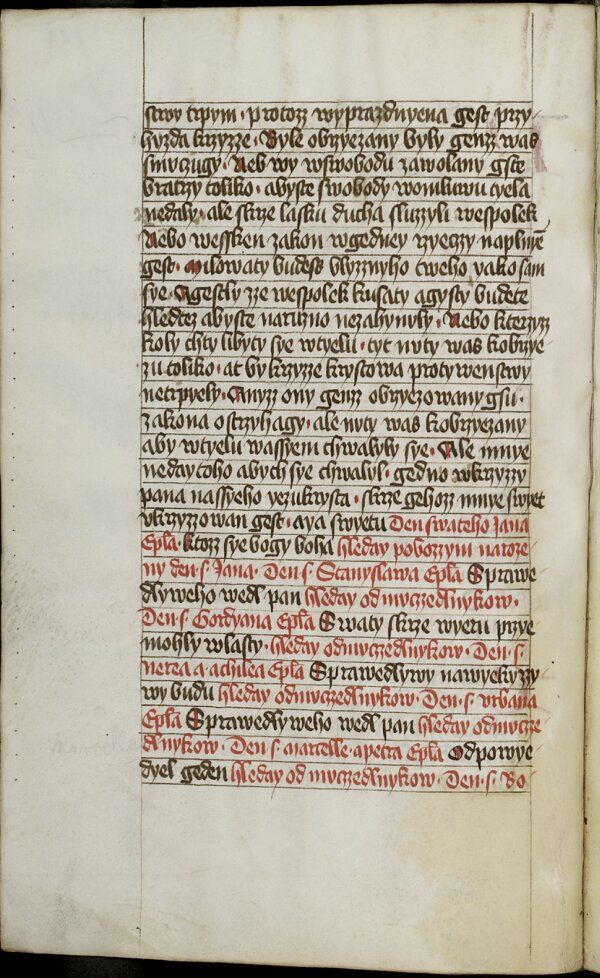 stwy trpym · protozz wyprazdnyena gest przy
hyzda krzyzze · Byle obrzyezany byly genzz was
smuczugy · Neb wy wswobodu zawolany gste
bratrzy toliko · abyste swobody womluwu tyela
nedaly · ale skrze lasku ducha sluzzyli wespolek
Nebo wessken zakon wgedney rzyeczy naplnye͞
gest · milowaty budess blyzznyho tweho yako sam
sye · Agestly zze wespolek kusaty agysty budete
hledtez abyste naruzno nezahynuly · Nebo kterzyz
koly chty libyty sye wtyelu · tyt nuty was kobrzye
zu toliko · at by krzyzze krystowa protywenstwy
netrpyely · Anyzz ony genzz obrzyezowany gsu ·
zakona ostrzyhagy · ale nuty was kobrzyezany
aby wtyelu wassyem chwalyly sye · Ale mnye
neday toho abych sye chwalyl · gedno wkrzyzzy
pana nassyeho yezukrysta · skrze gehozz mnye swyet
vkrzyzzowan gest · aya swyetu Den swateho Jana
Epl̃a · ktozz sye bogy boha hleday pobozzym naroze
ny den · s · Jana · Den · s · Stanyslawa Epl̃a Sprawe
dlyweho wedl pan hleday od muczedlnykow ·
Den · s · Gordyana Epl̃a Swaty skrze wyeru przye
mohly wlasty · hleday odmuczedlnykow · Den · s ·
nerea a · achilea Epl̃a Sprawedlywy nawyeky zy
wy budu hleday odmuczedlnykow · Den · s · vrbana
Epl̃a Sprawedlyweho wedl pan hleday odmucze
dlnykow · Den · s · marcelle · apetra Epl̃a Odpowye
dyel geden hleday od muczedlnykow · Den · s · Bo